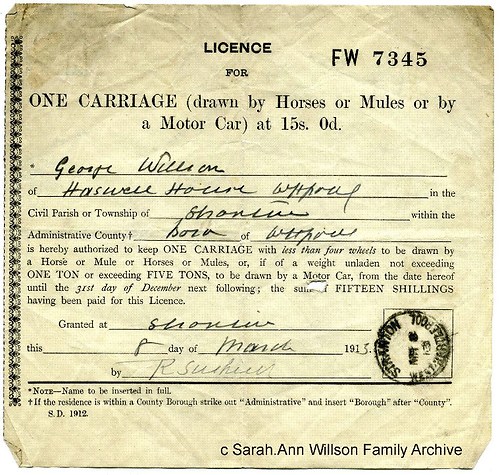 LICENCE
FW 7345
FOR
ONE CARRIAGE (drawn by Horses or Mules or by
a Motor Car) at 15s. 0d.
* George Willson
of Haswell House W Hpool in the
Civil Parish or Township of Stranton within the
Administrative County† Boro of W Hpool
is hereby authorized to keep ONE CARRIAGE with less than four wheels to be drawn by
a Horse or Mule or Horses or Mules, or, if of a weight unladen not exceeding
ONE TON or exceeding FIVE TONS, to be drawn by a Motor Car, from the date hereof
until the 31st day of December next following; the sum FIFTEEN SHILLINGS
having been paid for this Licence.
Granted at Stranton
this 8 day of March 1913.
by
STRANTON
WEST HARTLEPOOL
*NOTE—Name to be inserted in full.
†If the residence is within a County Borough strike out "Administrative" and insert "Borough" after "County".
S.D. 1912.
c Sarah.Ann Willson Family Archive